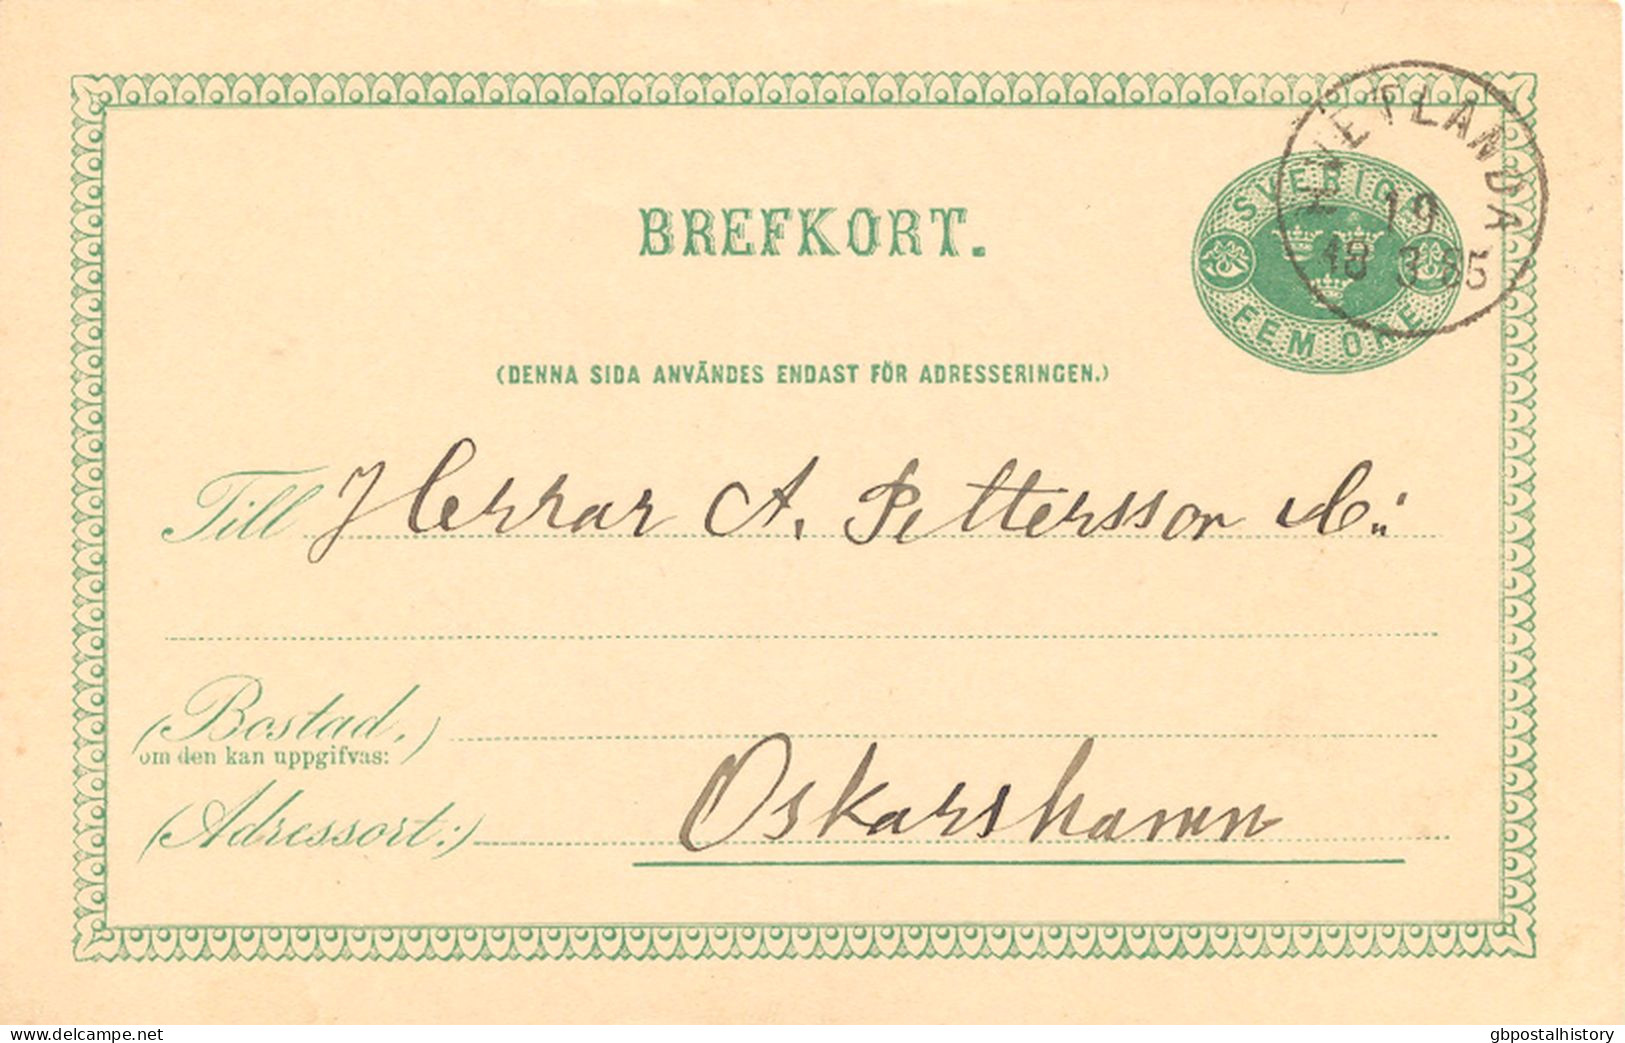 HVETLANDA
19
18 3 85
SVERIGE
FEM ÖRE
BREFKORT.
(DENNA SIDA ANVÄNDES ENDAST FÖR ADRESSERINGEN.)
Till Herrar A. Pettersson & C:
(Bostad,)
om den kan uppgifvas:
(Adressort:) Oskarshamn
delcampe.net
gbpostalhistory